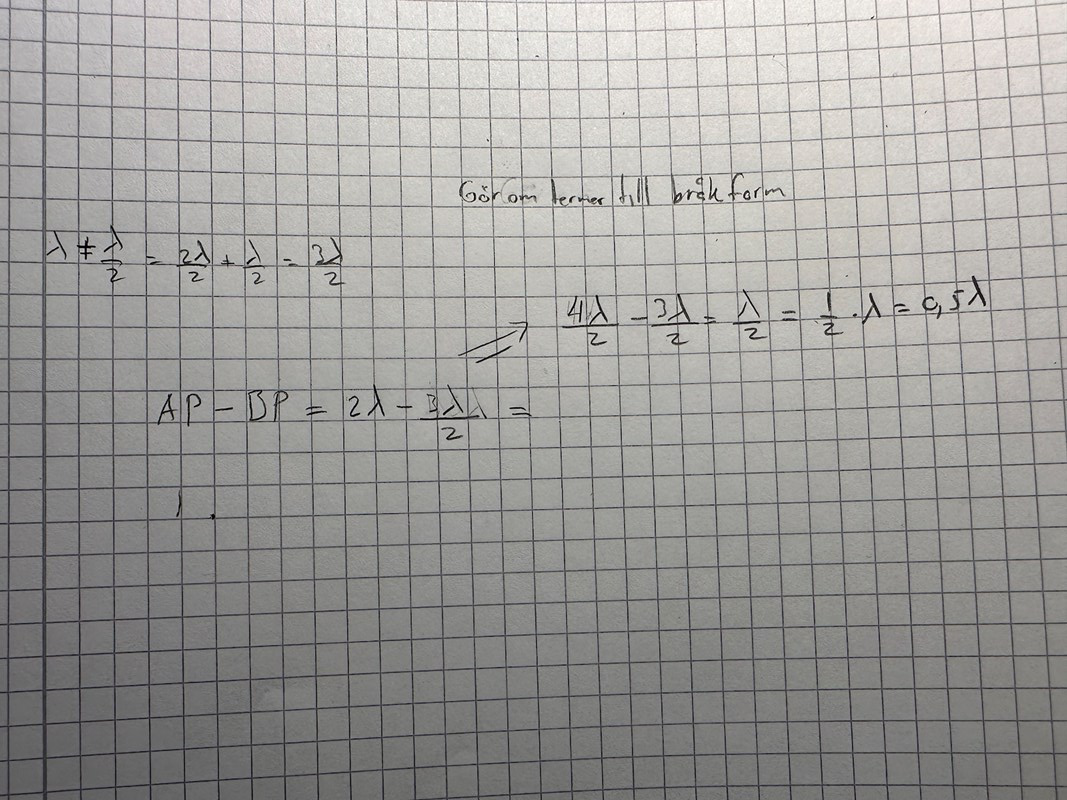 Gör om termer till bråkform
λ + λ/2 = 2λ/2 + λ/2 = 3λ/2
4λ/2 - 3λ/2 = λ/2 = 1/2 · λ = 0,5λ
AP - BP = 2λ - 3λ/2 =
1.